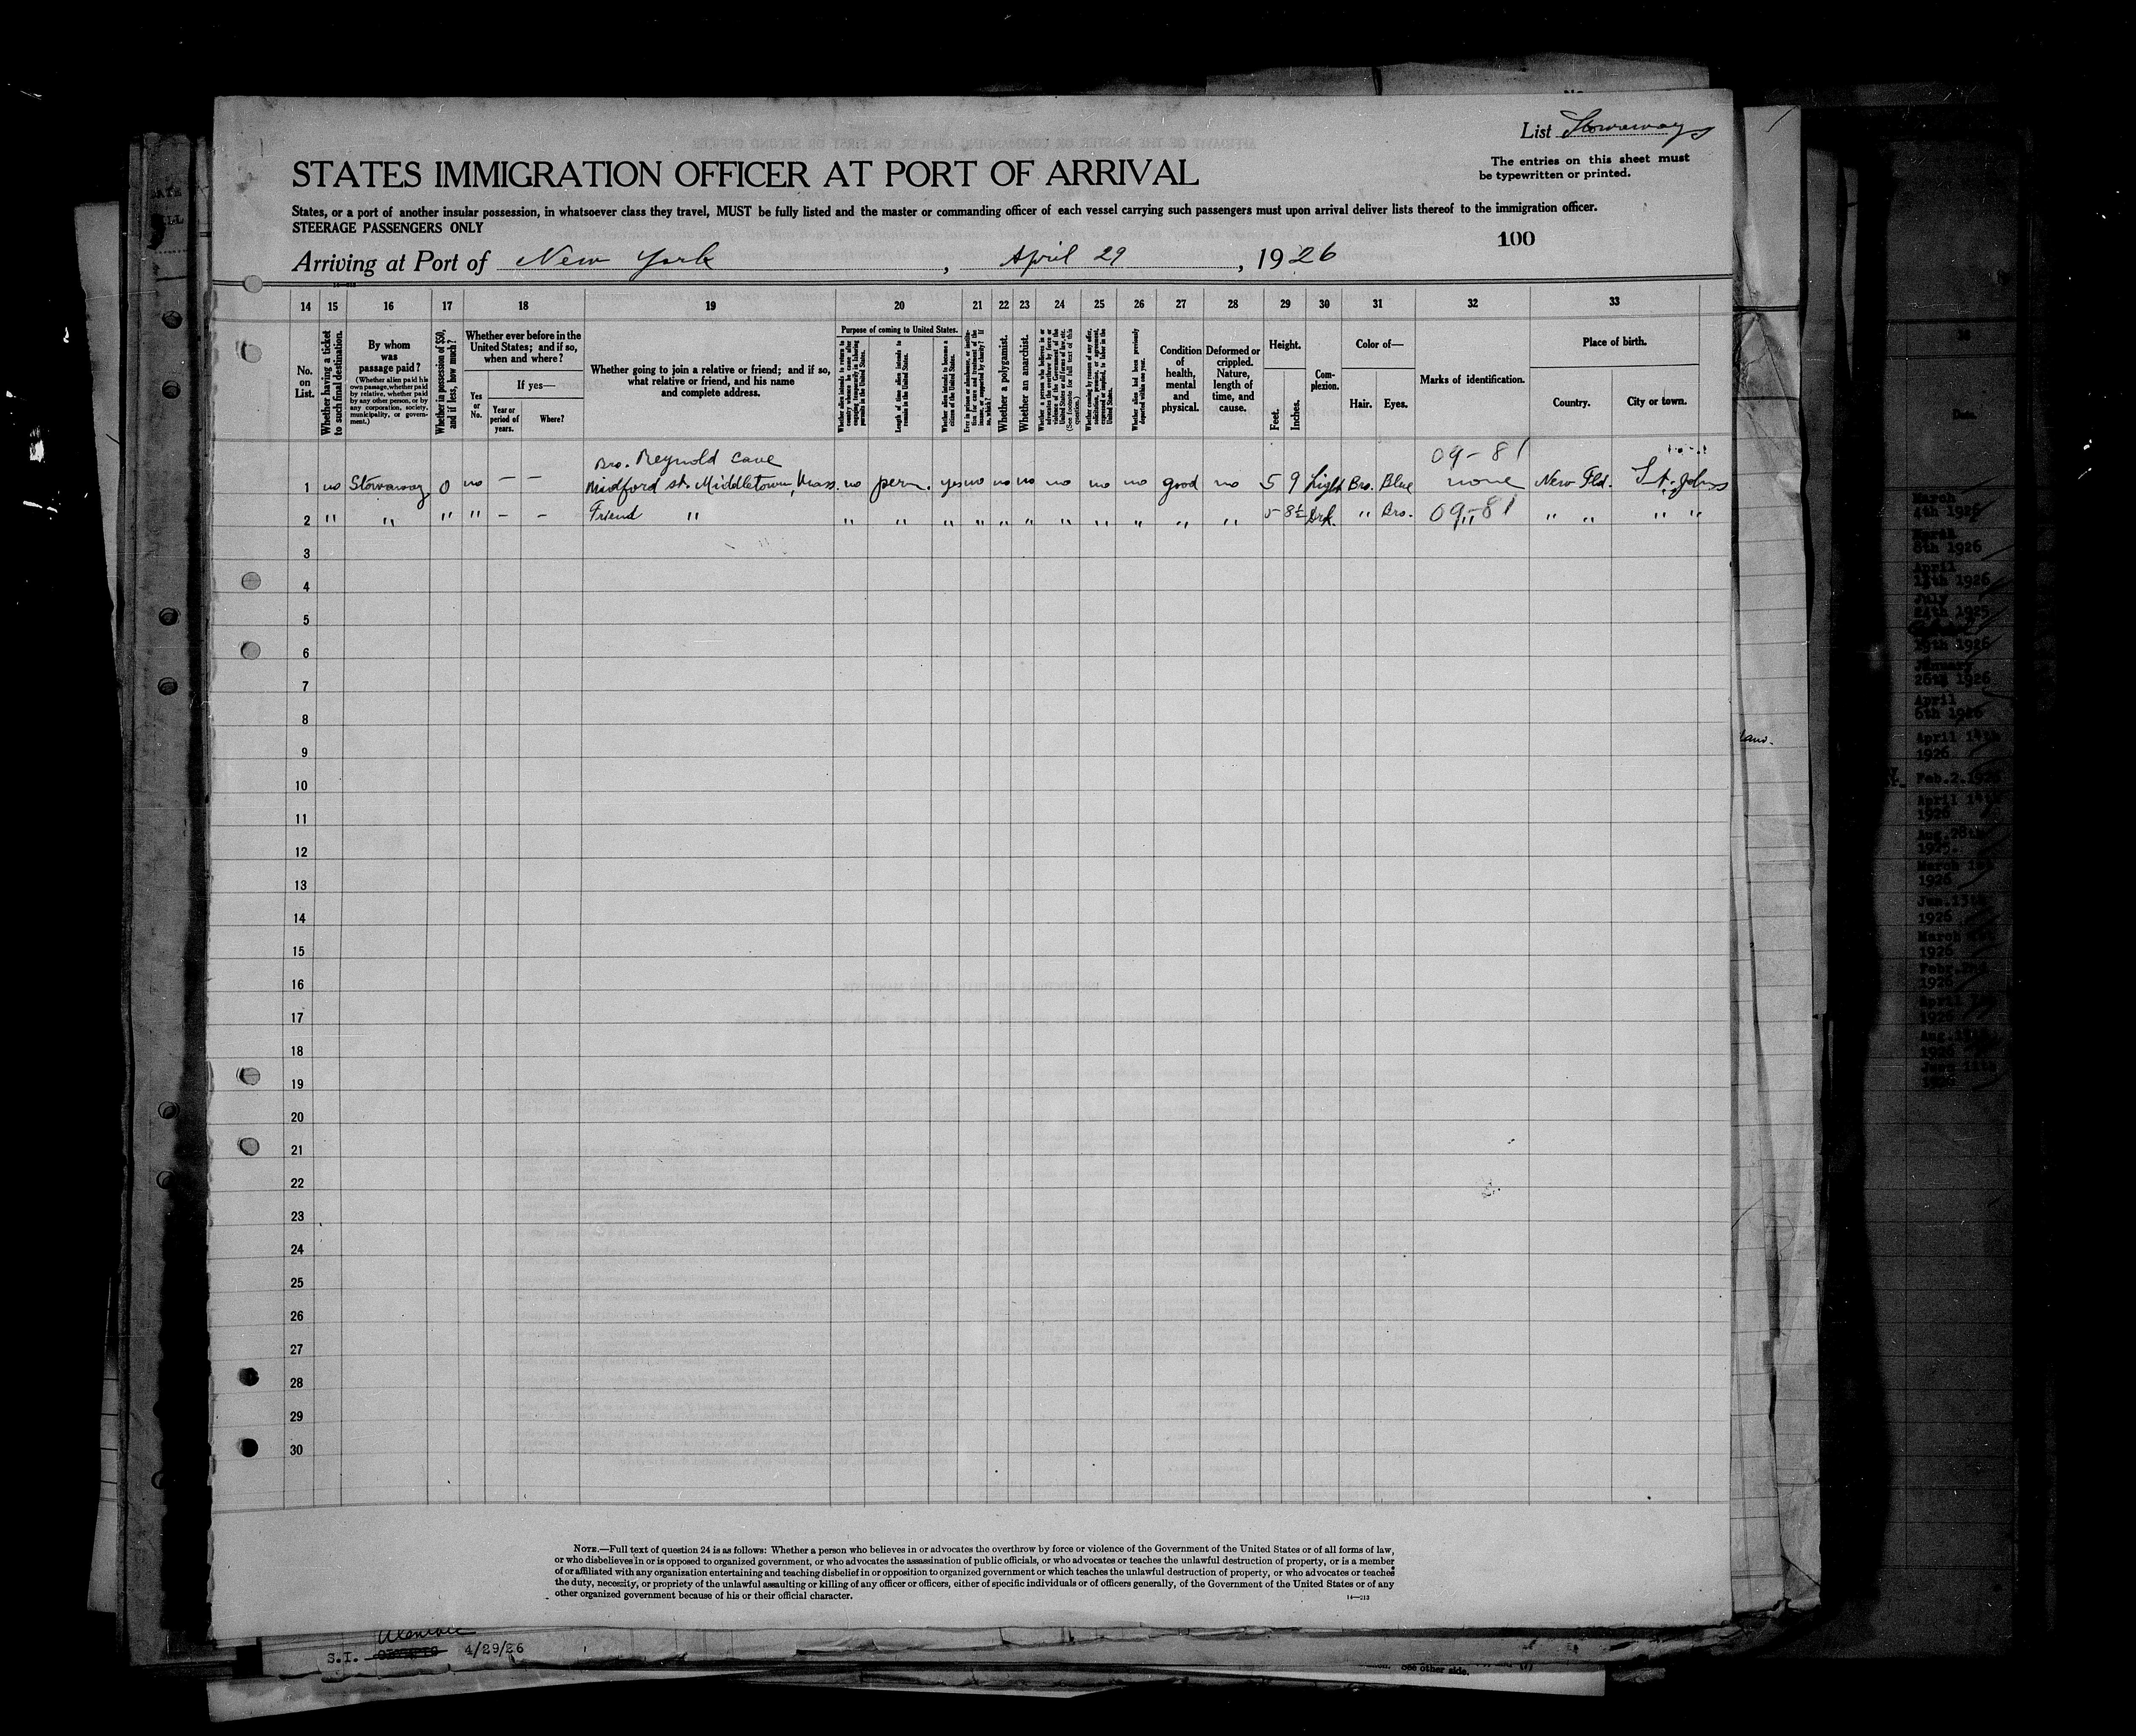 List Stowaways
The entries on this sheet must
be typewritten or printed.
STATES IMMIGRATION OFFICER AT PORT OF ARRIVAL
States, or a port of another insular possession, in whatsoever class they travel, MUST be fully listed and the master or commanding officer of each vessel carrying such passengers must upon arrival deliver lists thereof to the immigration officer.
STEERAGE PASSENGERS ONLY
100
Arriving at Port of New York, April 29, 1926
14 15 16 17 18 19 20 21 22 23 24 25 26 27 28 29 30 31 32 33
No. on List.
Whether having a ticket to such final destination.
By whom was passage paid?
(Whether alien paid his own passage, whether paid by relative, whether paid by any other person, or by any corporation, society, municipality, or government.)
Whether in possession of $50, and if less, how much?
Whether ever before in the United States; and if so, when and where?
Yes or No.
If yes—
Year or period of years.
Where?
Whether going to join a relative or friend; and if so, what relative or friend, and his name and complete address.
Purpose of coming to United States.
Whether alien intends to return to country whence he came after engaging temporarily in laboring pursuits in the United States.
Length of time alien intends to remain in the United States.
Whether alien intends to become a citizen of the United States.
Whether a polygamist.
Whether an anarchist.
Whether coming by reason of any offer, solicitation, promise, or agreement, expressed or implied, to labor in the United States.
Whether alien had been previously deported within one year.
Condition of health, mental and physical.
Deformed or crippled. Nature, length of time, and cause.
Height.
Feet. Inches.
Complexion.
Color of—
Hair. Eyes.
Marks of identification.
Place of birth.
Country. City or town.
Bro. Reynold Cave 09-81
1 no Stowaway 0 no — — Midford st. Middletown, Mass. no perm. yes no no no no no no good no 5 9 Light Bro. Blue none New Fld. St. Johns
2 " " " " - - Friend " " " " " " " " " " " " 5 8½ Drk. " Bro. 09-81 " " " " "
3
4
5
6
7
8
9
10
11
12
13
14
15
16
17
18
19
20
21
22
23
24
25
26
27
28
29
30
NOTE.—Full text of question 24 is as follows: Whether a person who believes in or advocates the overthrow by force or violence of the Government of the United States or of all forms of law,
or who disbelieves in or is opposed to organized government, or who advocates the assassination of public officials, or who advocates or teaches the unlawful destruction of property, or is a member
of or affiliated with any organization entertaining and teaching disbelief in or opposition to organized government or which teaches the unlawful destruction of property, or who advocates or teaches
the duty, necessity, or propriety of the unlawful assaulting or killing of any officer or officers, either of specific individuals or of officers generally, of the Government of the United States or of any
other organized government because of his or their official character.
14—213
S.I. 4/29/26
See other side.
Date.
March
4th 1926
March
8th 1926
April
13th 1926
July
24th 1925
19th 1926
January
26th 1926
April
6th 1926
April 14th
1926
Feb.2.1926